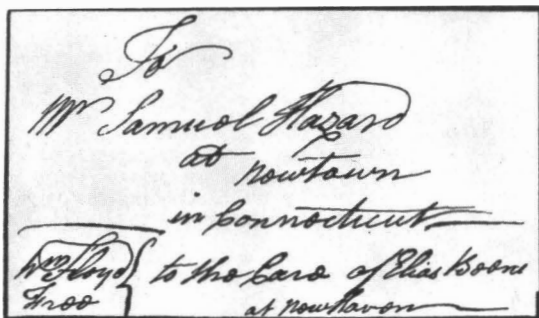 To
Mr Samuel Hazard
at
Newtown
in Connecticut
Wm Floyd } to the Care of Elias Boone
Free at New Haven